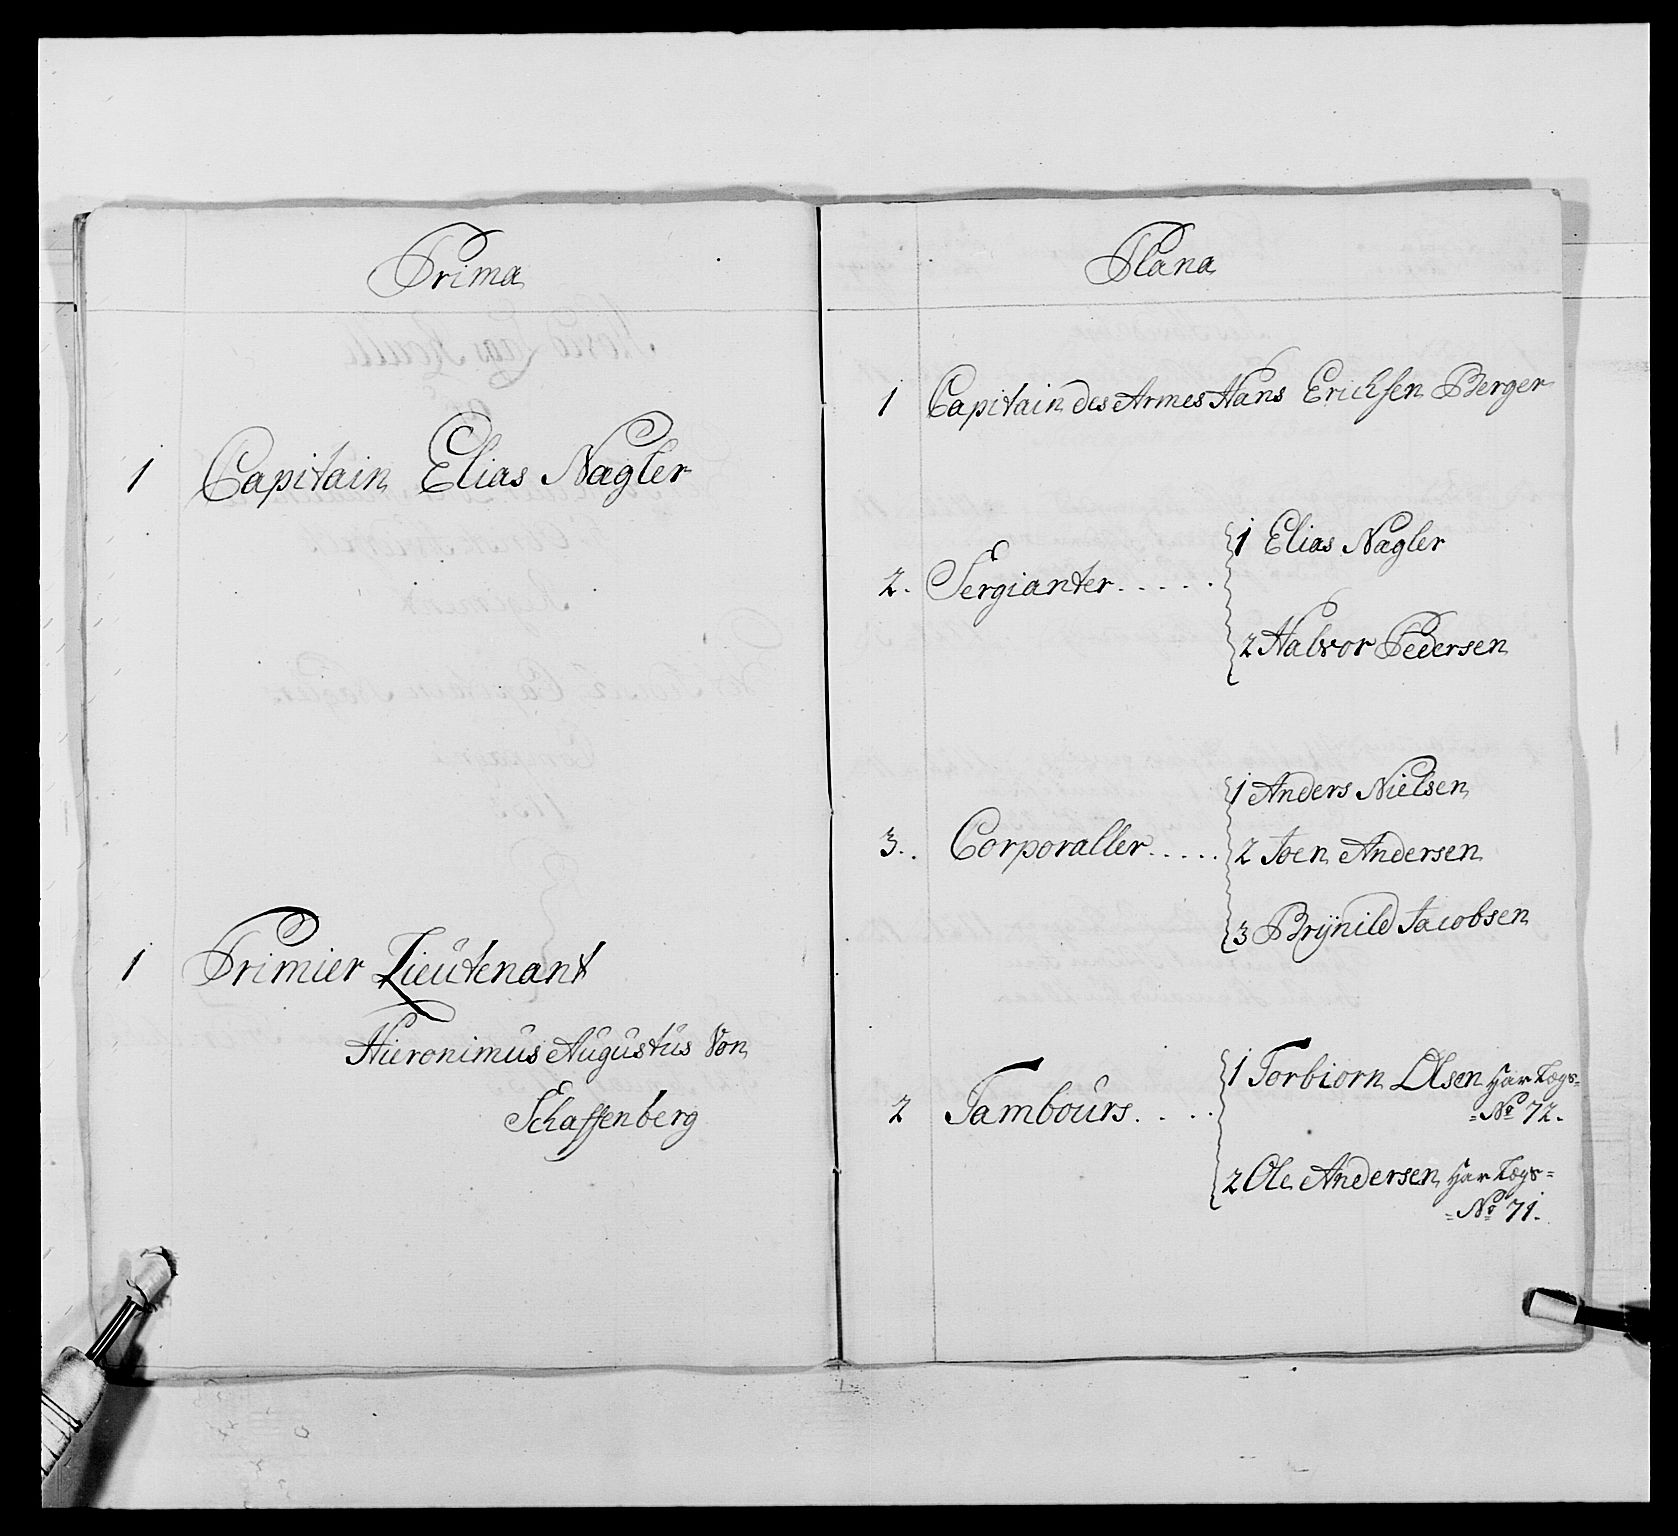 Prima
1 Capitain Elias Nagler
1 Primier Lieütenant
Hieronimüs Aügüstüs Von
Schaffenberg
Plana
1 Capitain des Armes Hans Erichsen Berger
2. Sergianter.....
1 Elias Nagler
2 Halvor Pedersen
3.. Corporaller.....
1 Anders Nielsen
2 Joen Andersen
3 Brÿnild Jacobsen
2 Tamboürs....
1 Torbiorn Olsen har Lægs=
=No 72.
2 Ole Andersen har Lægs=
=No 71.